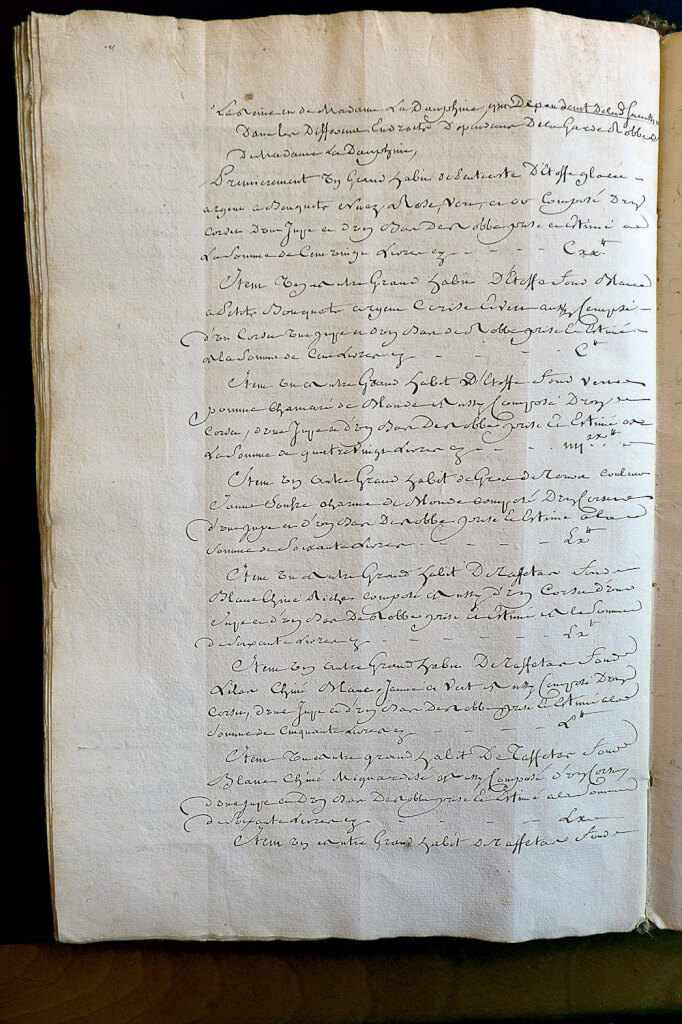 La Reine et de Madame La Dauphine, Dependent De lad
Dans les Differents Endroits Dependans De La Garde Robbe
De Madame La Dauphine,
Premierement Un Grand habit de D'Etoffe glacée
argent a Bouquets Rose, Vert, et or Composé D'un
Corset D'une Jupe et d'un Bas De Robbe prisé et Estimé a
La Somme de Cent vingt Livres cy - - - Cxx ₶
Item Un autre Grand habit D'Etoffe fond Blanc
a Petits Bouquets argent Cerise et vert aussy Composé
d'un Corset Une Jupe et d'un Bas de Robbe prisé et Estimé
a la Somme de Cent Livres cy - - - - C ₶
Item Un autre Grand habit D'Etoffe fond vert
pomme Chamaré de Blonde aussy Composé D'un
Corset, d'une Jupe et d'un Bas De Robbe prisé et Estimé a
La Somme de quatre Vingt Livres cy - - - iiii xx ₶
Item Un autre Grand habit de Gros de couleur
Jaune Soufre de Blonde composé D'un Corset
d'une Jupe et d'un Bas De Robbe prisé et Estimé a la
Somme de Soixante Livres - - - - Lx ₶
Item Un autre Grand habit De Taffetas fond
Blanc Chiné Riches composé aussy d'un Corset d'une
Jupe et d'un Bas De Robbe prisé et Estimé a La Somme
de Soixante Livres cy - - - - - Lx ₶
Item Un autre Grand habit De Taffetas fond
Lilas Chiné Blanc, Jaune et Vert aussy Composé D'un
Corset, d'une Jupe et d'un Bas De Robbe prisé et Estimé a la
Somme de Cinquante Livres cy - - - - L ₶
Item Un autre grand habit De Taffetas fond
Blanc Chiné Mignardise aussy Composé d'un Corset,
d'une Jupe et D'un Bas De Robbe prisé et Estimé a la Somme
de Soixante Livres cy - - - - - Lx
Item Un autre Grand habit De Taffetas fond